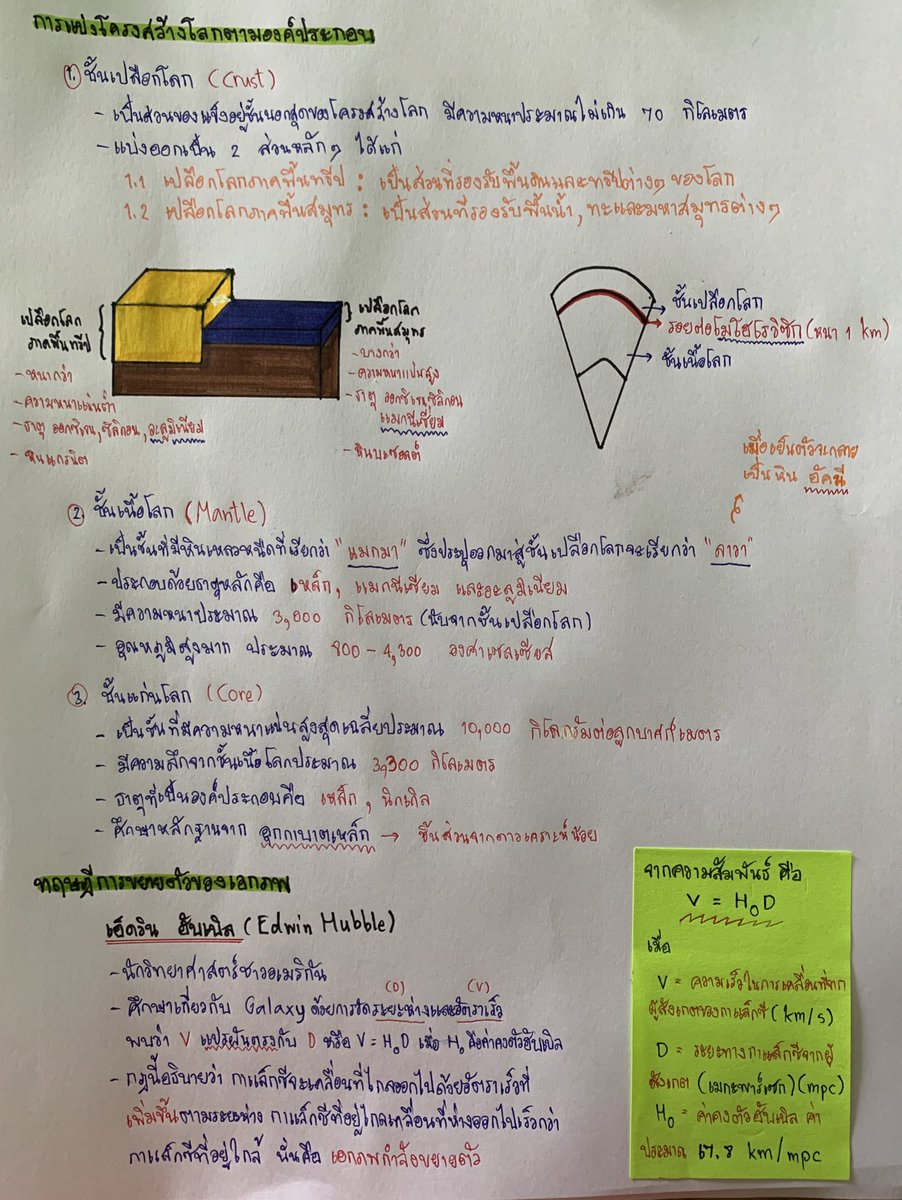 การแบ่งโครงสร้างโลกตามองค์ประกอบ
1. ชั้นเปลือกโลก (Crust)
- เป็นส่วนของแข็งอยู่ชั้นนอกสุดของโครงสร้างโลก มีความหนาประมาณไม่เกิน 70 กิโลเมตร
- แบ่งออกเป็น 2 ส่วนหลักๆ ได้แก่
1.1 เปลือกโลกภาคพื้นทวีป : เป็นส่วนที่รองรับพื้นดินและทวีปต่างๆ ของโลก
1.2 เปลือกโลกภาคพื้นสมุทร : เป็นส่วนที่รองรับพื้นน้ำ, ทะเลและมหาสมุทรต่างๆ
เปลือกโลก
ภาคพื้นทวีป
- หนากว่า
- ความหนาแน่นต่ำ
- ธาตุ ออกซิเจน, ซิลิกอน, อะลูมิเนียม
- หินแกรนิต
เปลือกโลก
ภาคพื้นสมุทร
- บางกว่า
- ความหนาแน่นสูง
- ธาตุ ออกซิเจน, ซิลิกอน
แมกนีเซียม
- หินบะซอลต์
ชั้นเปลือกโลก
รอยต่อโมโฮโรวิซิก (หนา 1 km)
ชั้นเนื้อโลก
เมื่อเย็นตัวจะกลาย
เป็นหิน อัคนี
2. ชั้นเนื้อโลก (Mantle)
- เป็นชั้นที่มีหินเหลวหนืดที่เรียกว่า "แมกมา" ซึ่งปะทุออกมาสู่ชั้นเปลือกโลกจะเรียกว่า "ลาวา"
- ประกอบด้วยธาตุหลักคือ เหล็ก, แมกนีเซียม และอะลูมิเนียม
- มีความหนาประมาณ 3,000 กิโลเมตร (นับจากชั้นเปลือกโลก)
- อุณหภูมิสูงมาก ประมาณ 800 - 4,300 องศาเซลเซียส
3. ชั้นแก่นโลก (Core)
- เป็นชั้นที่มีความหนาแน่นสูงสุดเฉลี่ยประมาณ 10,000 กิโลกรัมต่อลูกบาศก์เมตร
- มีความลึกจากชั้นเนื้อโลกประมาณ 3,300 กิโลเมตร
- ธาตุที่เป็นองค์ประกอบคือ เหล็ก, นิกเกิล
- ศึกษาหลักฐานจาก อุกกาบาตเหล็ก → ชิ้นส่วนจากดาวเคราะห์น้อย
ทฤษฎีการขยายตัวของเอกภพ
เอ็ดวิน ฮับเบิล (Edwin Hubble)
- นักวิทยาศาสตร์ชาวอเมริกัน
(D) (V)
- ศึกษาเกี่ยวกับ Galaxy ด้วยการวัดระยะห่างและอัตราเร็ว
พบว่า V แปรผันตรงกับ D หรือ V = H₀D เมื่อ H₀ คือค่าคงตัวฮับเบิล
- กฎนี้อธิบายว่า กาแล็กซีจะเคลื่อนที่ไกลออกไปด้วยอัตราเร็วที่
เพิ่มขึ้นตามระยะห่าง กาแล็กซีที่อยู่ไกลเคลื่อนที่ห่างออกไปเร็วกว่า
กาแล็กซีที่อยู่ใกล้ นั่นคือ เอกภพกำลังขยายตัว
จากความสัมพันธ์ คือ
V = H₀D
เมื่อ
V = ความเร็วในการเคลื่อนที่จาก
ผู้สังเกตของกาแล็กซี (km/s)
D = ระยะทางกาแล็กซีจากผู้
สังเกต (เมกะพาร์เซก) (mpc)
H₀ = ค่าคงตัวฮับเบิล ค่า
ประมาณ 67.8 km/mpc